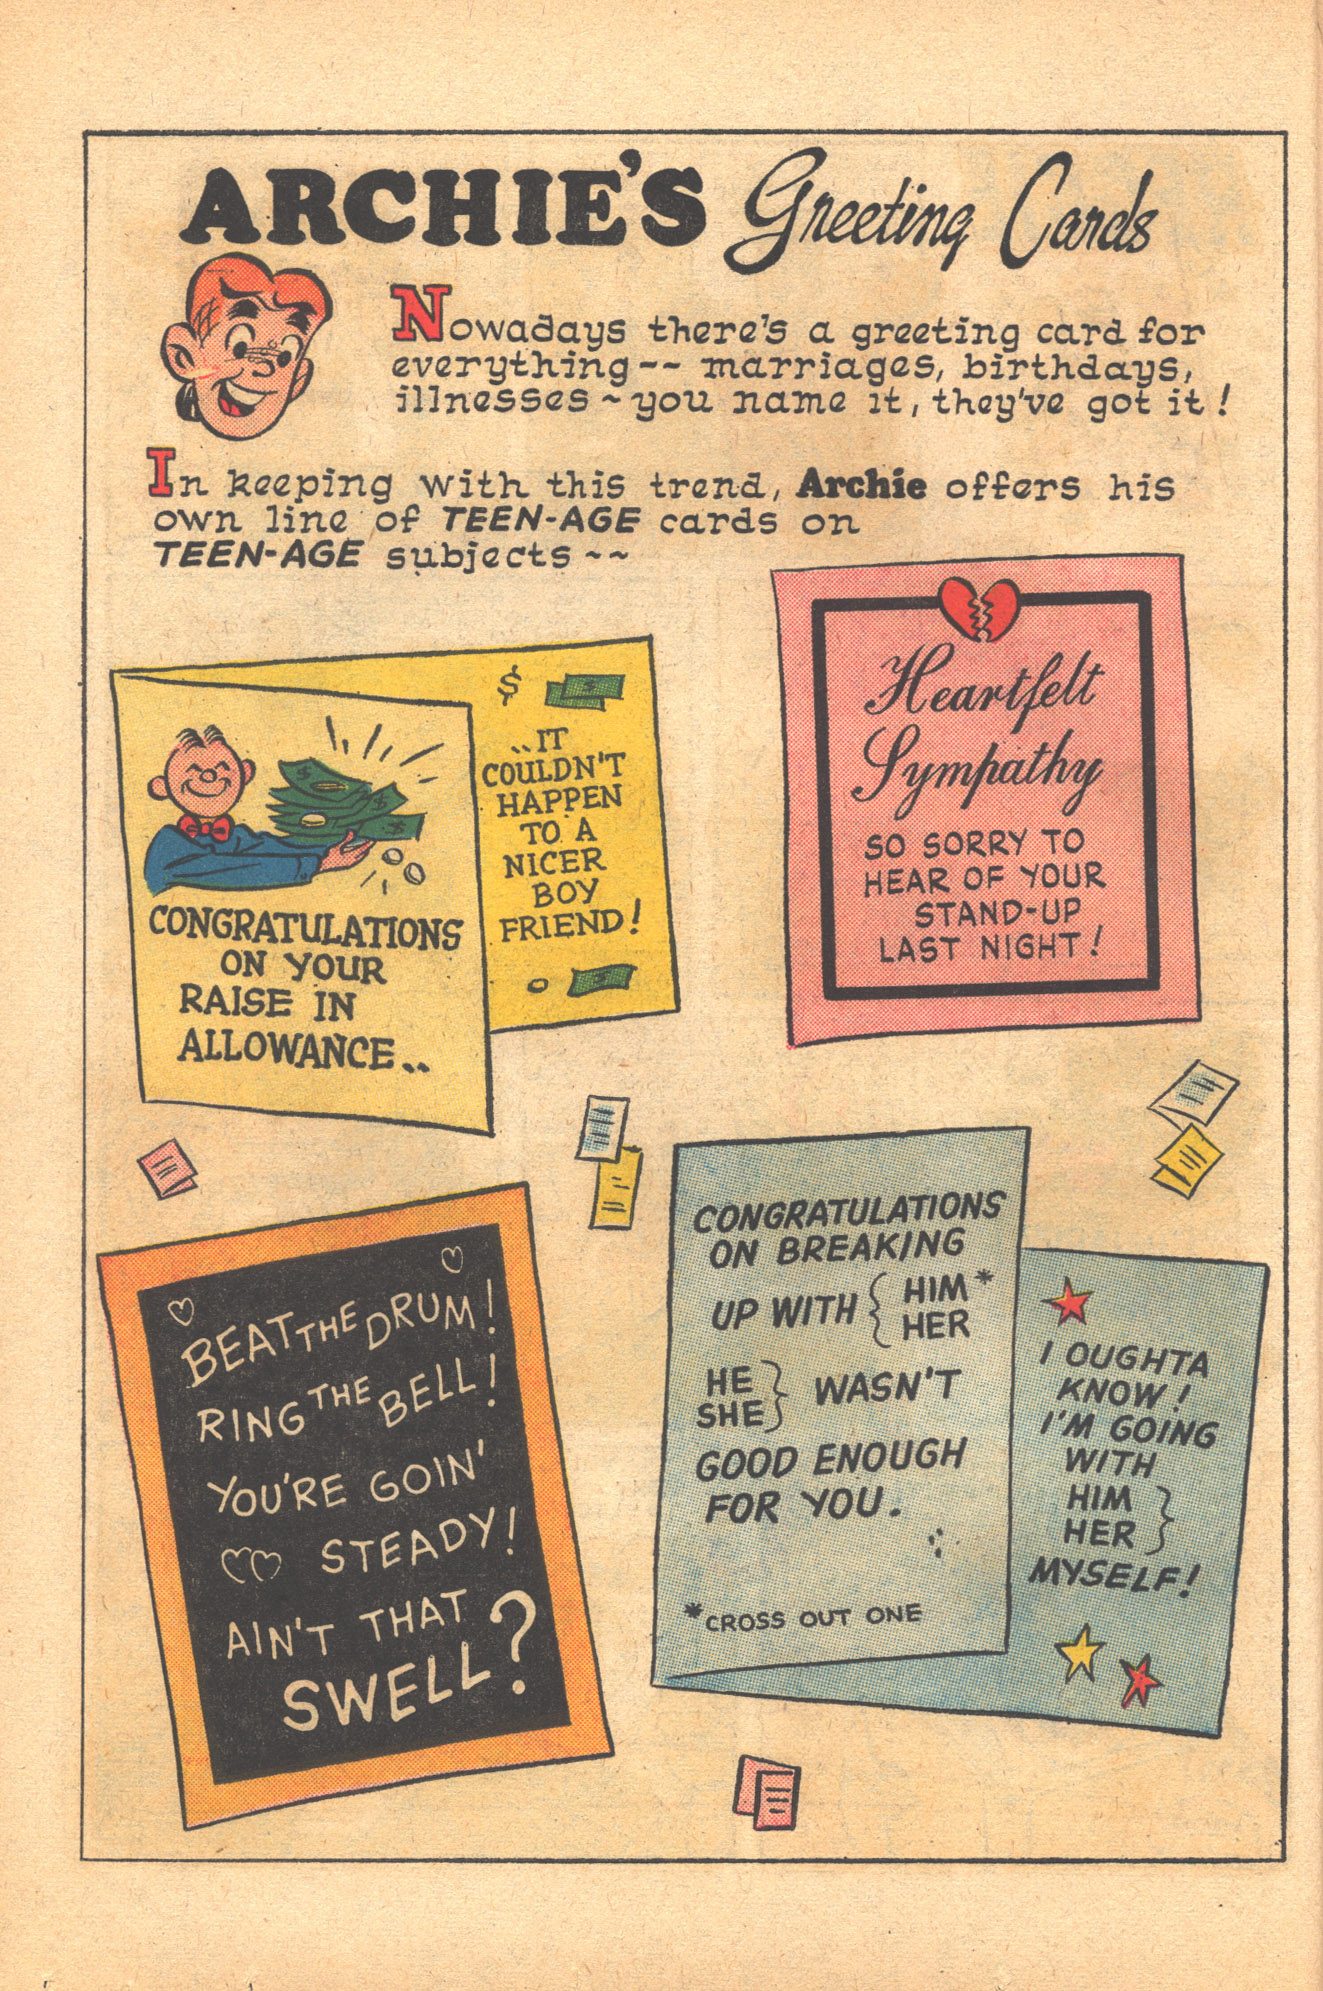 ARCHIE'S Greeting Cards
Nowadays there's a greeting card for
everything -- marriages, birthdays,
illnesses ~ you name it, they've got it!
In keeping with this trend, Archie offers his
own line of TEEN-AGE cards on
TEEN-AGE subjects ~~
CONGRATULATIONS
ON YOUR
RAISE IN
ALLOWANCE..
$
..IT
COULDN'T
HAPPEN
TO A
NICER
BOY
FRIEND!
Heartfelt
Sympathy
SO SORRY TO
HEAR OF YOUR
STAND-UP
LAST NIGHT!
BEAT THE DRUM!
RING THE BELL!
YOU'RE GOIN'
STEADY!
AIN'T THAT
SWELL?
CONGRATULATIONS
ON BREAKING
UP WITH { HIM*
HER
HE
SHE } WASN'T
GOOD ENOUGH
FOR YOU.
*CROSS OUT ONE
I OUGHTA
KNOW!
I'M GOING
WITH
HIM
HER }
MYSELF!